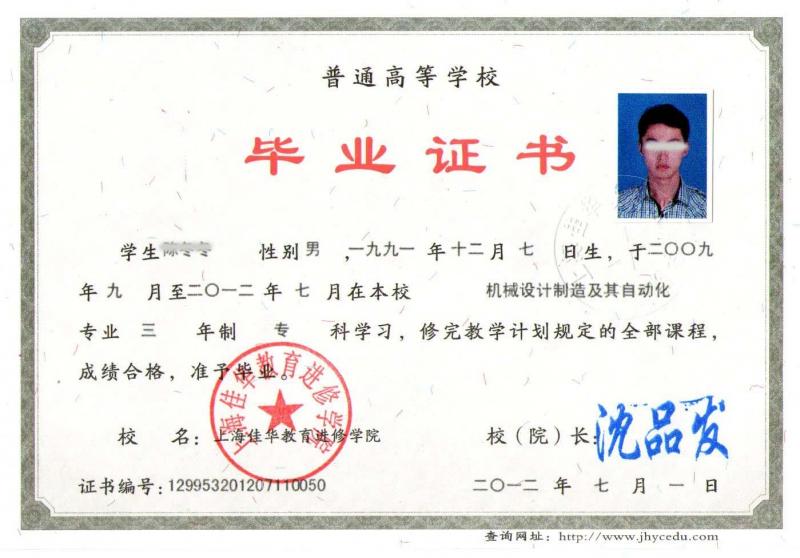 普通高等学校
毕业证书
学生 性别 男 ,一九九一 年 十二 月 七 日生, 于二〇〇九
年 九 月至二〇一二 年 七 月在本校 机械设计制造及其自动化
专业 三 年制 专 科学习, 修完教学计划规定的全部课程,
成绩合格, 准予毕业。
上海佳华教育进修学院
校 名: 上海佳华教育进修学院 校(院)长: 沈品发
证书编号: 129953201207110050 二〇一二 年 七 月 一 日
查询网址: http://www.jhycedu.com